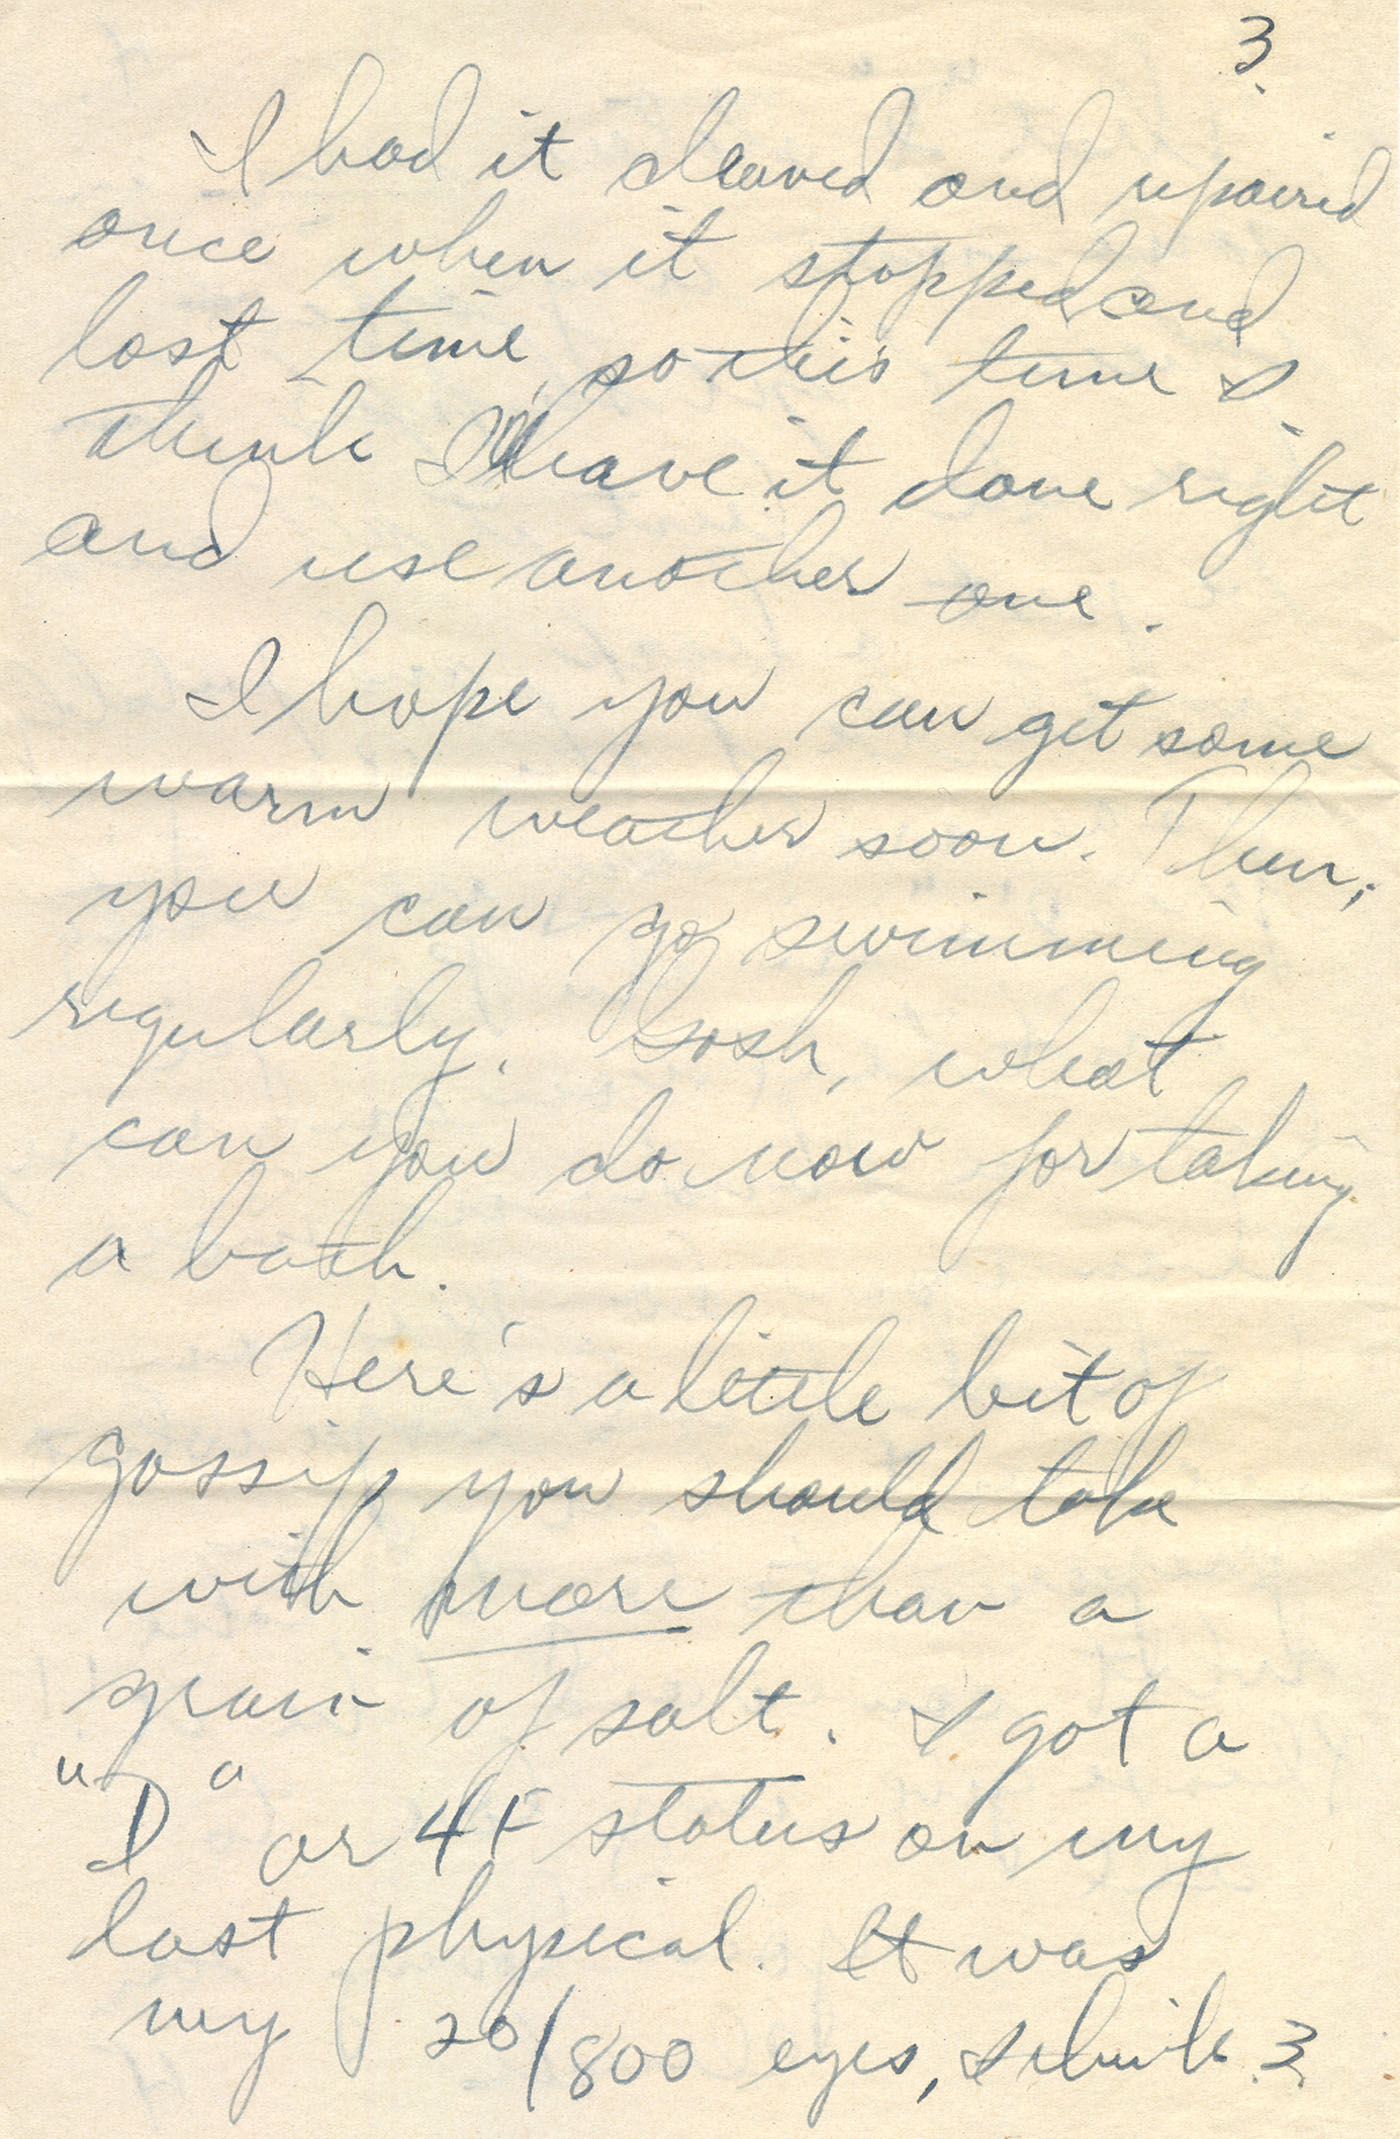 3.
I had it cleaned and repaired
once when it stopped and
lost time, so this time I
think I'll have it done right
and use another one.
I hope you can get some
warm weather soon. Then,
you can go swimming
regularly. Gosh, what
can you do now for taking
a bath.
Here's a little bit of
gossip you should take
with more than a
grain of salt. I got a
"D" or 4F status on my
last physical. It was
my 20/800 eyes, I think. 3.